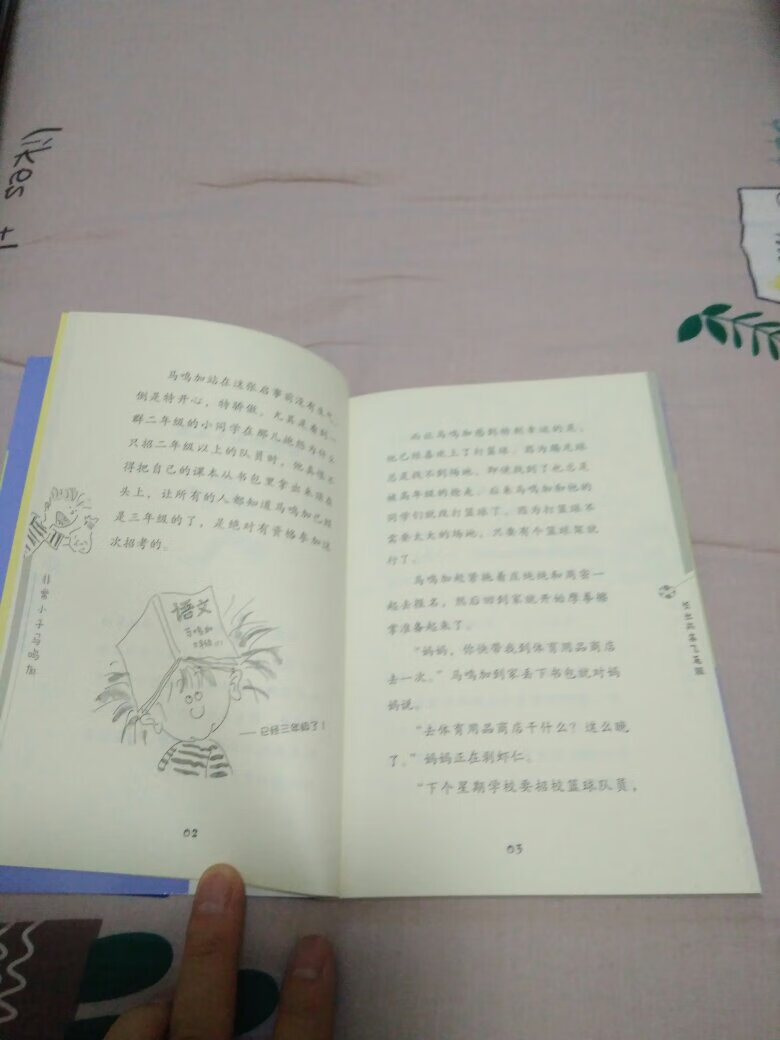 likes
马鸣加站在这张启事前没有生气，
倒是特开心，特骄傲。尤其是看到一
群二年级的小同学在那儿抱怨为什么
只招二年级以上的队员时，他真恨不
得把自己的课本从书包里拿出来顶在
头上，让所有的人都知道马鸣加已经
是三年级的了，是绝对有资格参加这
次招考的。
非常小子马鸣加
语文
马鸣加
——已经三年级了！
02
而让马鸣加感到特别幸运的是，
他已经喜欢上了打篮球。因为踢足球
总是找不到场地，即使找到了也总是
被高年级的抢走。后来马鸣加和他的
同学们就改打篮球了。因为打篮球不
需要太大的场地，只要有个篮球架就
行了。
马鸣加赶紧拖着庄炖炖和周密一
起去报名，然后回到家就开始摩拳擦
掌准备起来了。
“妈妈，你快带我到体育用品商店
去一次。”马鸣加到家丢下书包就对妈
妈说。
“去体育用品商店干什么？这么晚
了。”妈妈正在剥虾仁。
“下个星期学校要招校篮球队员，
03